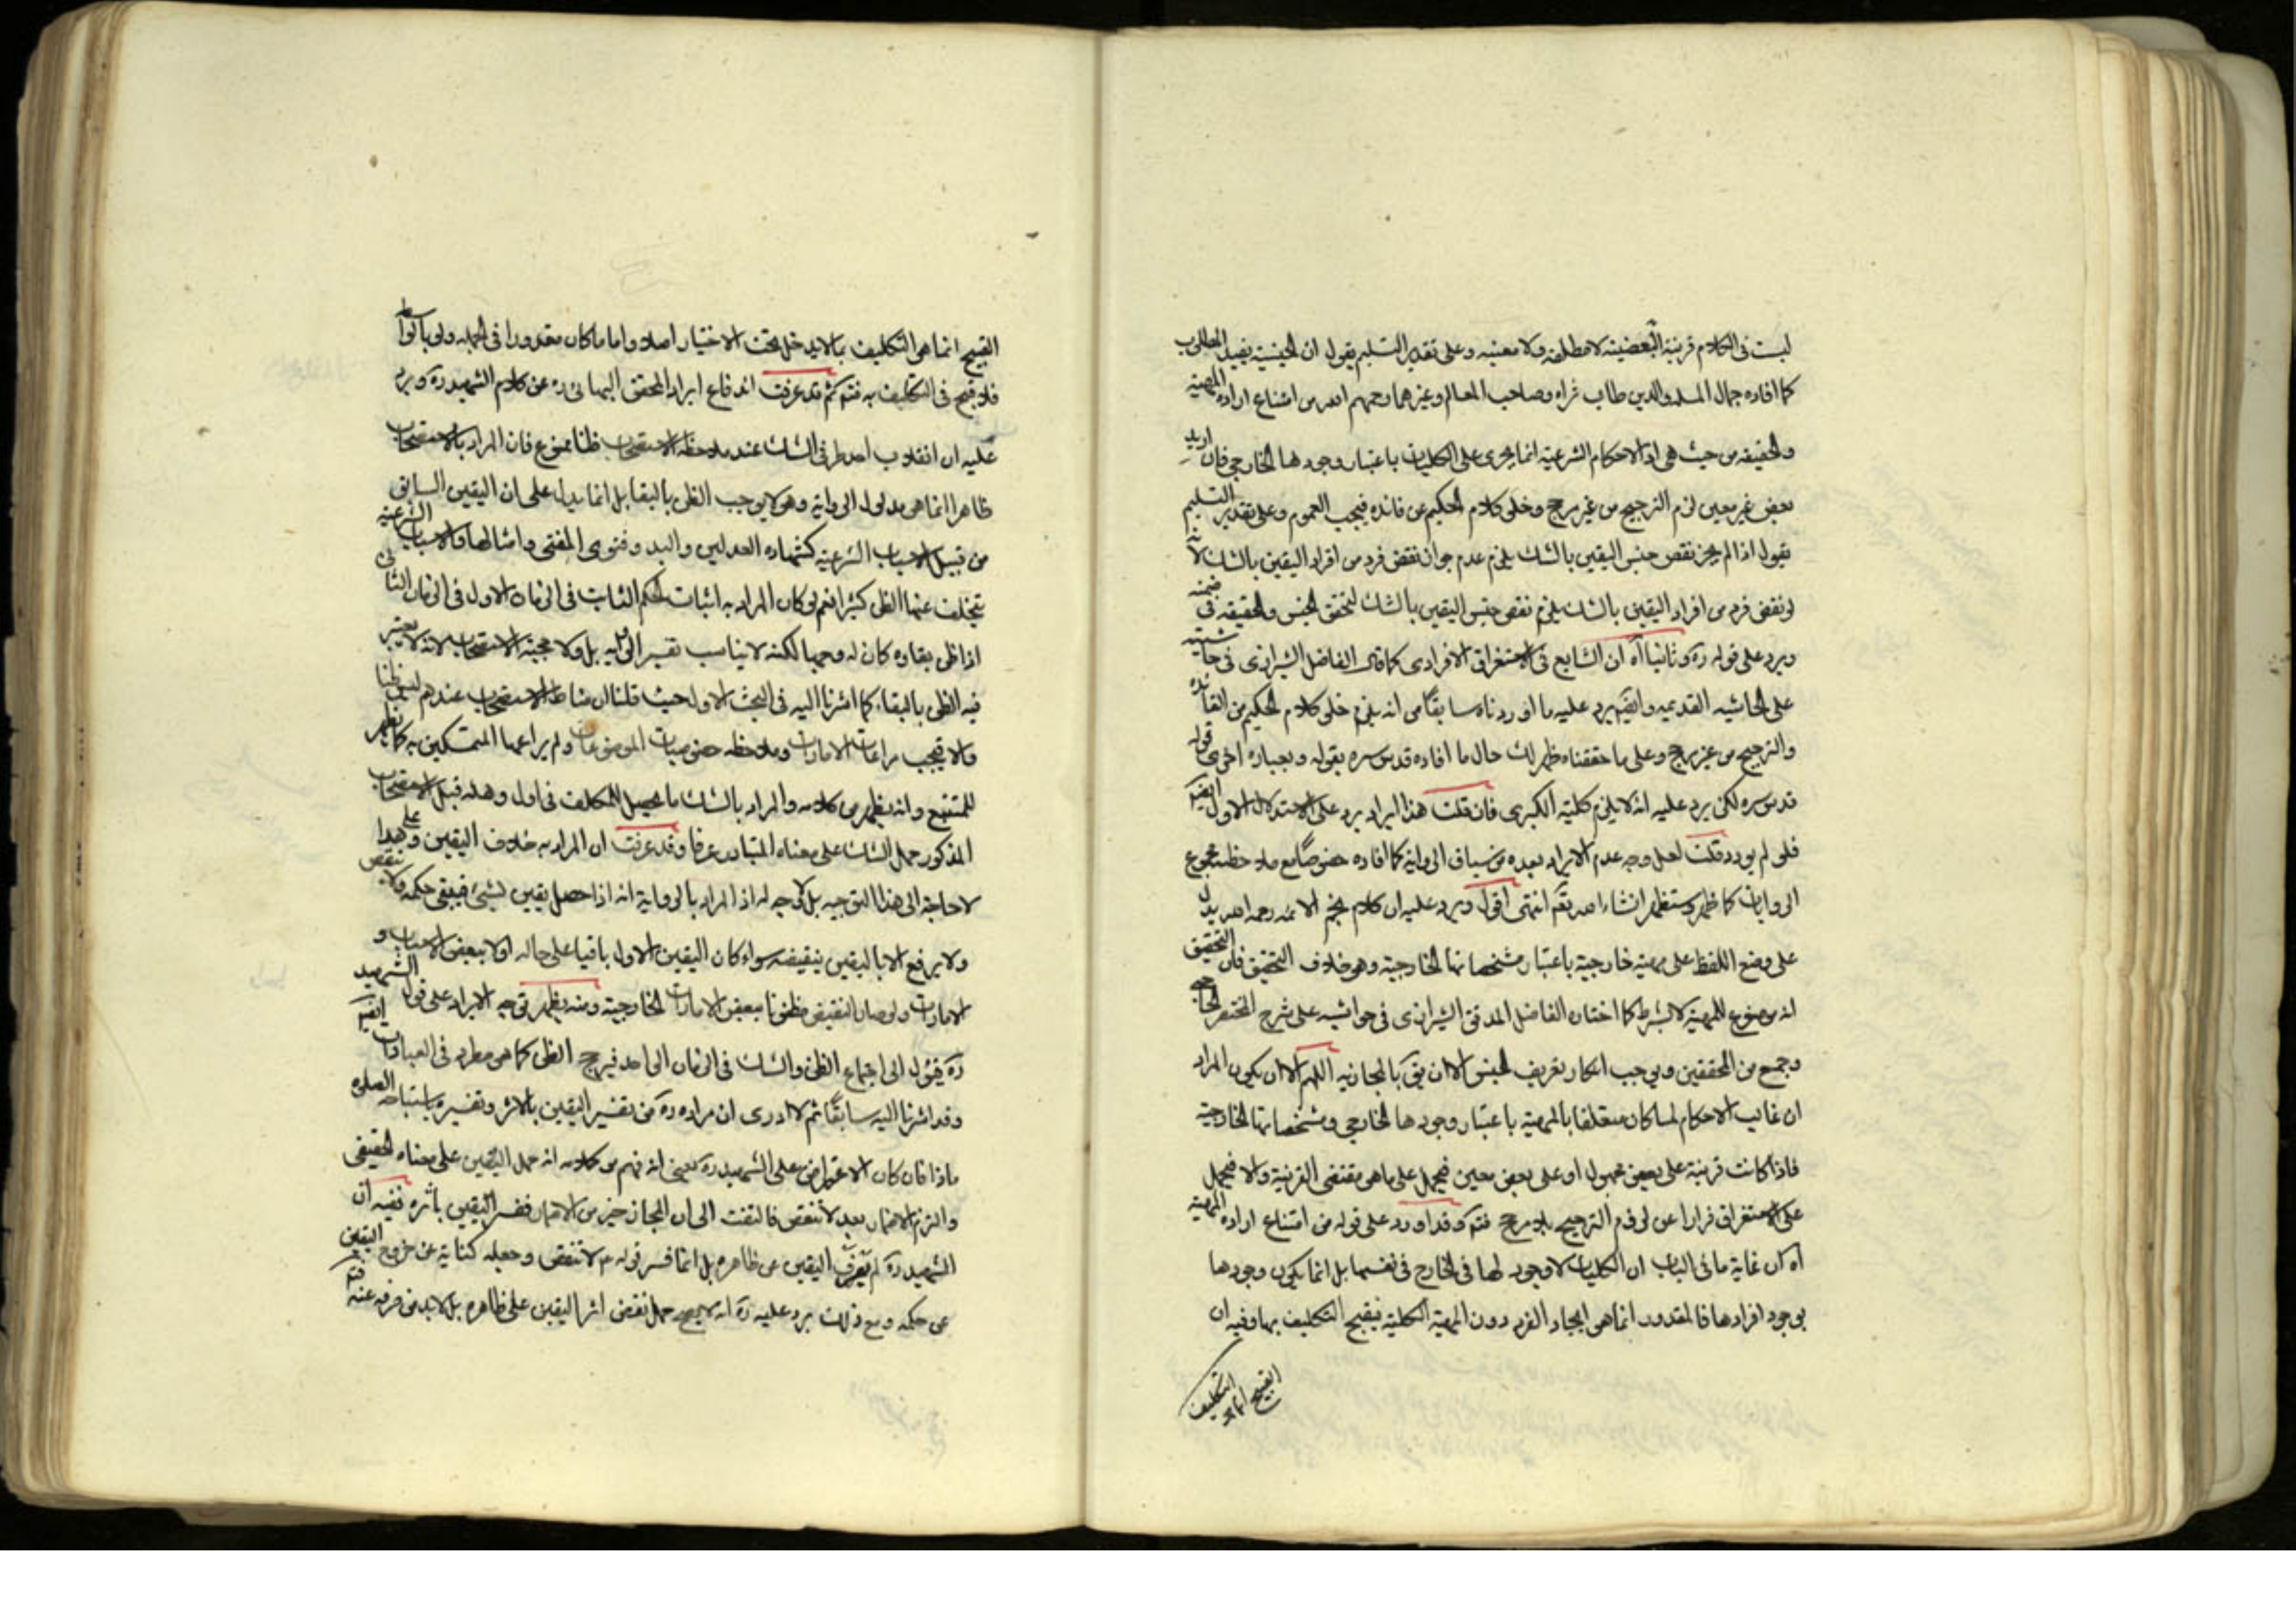 ليست فى الكلام قرينة البعضية لا مطلقه ولا معينه وعلى تقدير التسليم يقول ان الجنسية يفيد المطلوب
كما افاده جمال المله والدين طاب ثراه وصاحب المعالم وغيرهما رحمهم الله من امتناع اراده المهية
والحقيقه من حيث هى اذ الاحكام الشرعية انما يجرى على الكليات باعتبار وجودها الخارجى فان اريد
بعض غير معين لزم الترجيح من غير مرجح وخلى كلام الحكيم عن فائده فيجب العموم وعلى تقدير التسليم
يقول اذا لم يجز نقض جنس اليقين بالشك يلزم عدم جواز نقض فرد من افراد اليقين بالشك لان
لو نقض فرد من افراد اليقين بالشك يلزم نقض جنس اليقين بالشك لتحقق الجنس والحقيقه فى ضمنه
ويرد على قوله ره وثانيا آه ان الشايع فى الاستغراق الافرادى كما قال الفاضل الشيرازى فى حاشيته
على الحاشيه القديمه وايضا يرد عليه ما اوردناه سابقا من انه يلزم خلى كلام الحكيم من الفائده
والترجيح من غير مرجح وعلى ما حققناه ظهر لك حال ما افاده قدس سره بقوله وبعباره اخرى قوله
قدس سره لكن يرد عليه انه لا يلزم كلية الكبرى فان قلت هذا الايراد يرد على الاستدلال الاول ايضا
فلو لم يورد قلت لعل وجه عدم الايراد بعده من سياق الرواية كما افاده خصوصا مع ملاحظة مجموع
الروايات كما ظهر وستظهر انشاء الله تعالى انتهى اقول ويرد عليه ان كلام نجم الائمه رحمه الله يدل
على وضع اللفظ على مهية خارجية باعتبار مشخصاتها الخارجية وهو خلاف التحقيق فان التحقيق
انه موضوع للمهية لا بشرط كما اختاره الفاضل المدقق الشيرازى فى حواشيه على شرح المختصر
وجمع من المحققين ويوجب انكار تعريف الجنس الا ان يق بالمجازيه اللهم الا ان يكون المراد
ان غالب الاحكام لما كان متعلقا بالمهية باعتبار وجودها الخارجى ومشخصاتها الخارجية
فاذا كانت قرينة على بعض مجهول او على بعض معين فيحمل على ما هى مقتضى القرينة والا فيحمل
على الاستغراق فرارا عن لزوم الترجيح بلا مرجح فتم وقد اورد على قوله من امتناع اراده المهية
آه ان غاية ما فى الباب ان الكليات لا وجود لها فى الخارج فى نفسها بل انما يكون وجودها
بوجود افرادها فالمقدور انما هى ايجاد الفرد دون المهية الكلية فيقبح التكليف بها وفيه ان
القبيح انما هى التكليف
القبيح انما هى التكليف بما لا يدخل تحت الاختيار اصلا واما ما كان مقدورا فى الجمله ولو بالواسطه
فلا قبح فى التكليف به فتم ثم قد عرفت اندفاع ايراد المحقق البهائى ره عن كلام الشهيد ره ويرد
عليه ان انقلاب احد طرفى الشك عند ملاحظه الاستصحاب ظنا ممنوع فان المراد بالاستصحاب
ظاهرا انما هى مدلول الرواية وهو لا يوجب الظن بالبقا بل انما يدل على ان اليقين السابق
من قبيل الاسباب الشرعية كشهاده العدلين واليد وفتوى المفتى وامثالها والاسباب الشرعية
يتخلف عنها الظن كثيرا نعم لو كان المراد به اثبات الحكم الثابت فى الزمان الاول فى الزمان الثانى
اذا ظن بقاوه كان له وجها لكنه لا يناسب تفسير الرواية بل ولا حجية الاستصحاب لانه لا يعتبر
فيه الظن بالبقاء كما اشرنا اليه فى البحث الاول حيث قلنا ان مناط الاستصحاب عندهم ليس ظنا
والا فيجب مراعات الامارات وملاحظه خصوصيات الموضوعات ولم يراعها المتمسكين به كما يظهر
للمتتبع وانه يظهر من كلامه والمراد بالشك ما يحصل للمكلف فى اول وهله قبل الاستصحاب
المذكور حمل الشك على معناه المتبادر عرفا وقد عرفت ان المراد به خلاف اليقين وعلى هذا
لا حاجة الى هذا التوجيه بل لا وجه له اذ المراد بالرواية انه اذا حصل يقين لشئ فيبقى حكمه ولا ينقض
ولا يرفع الا باليقين بنقيضه سواء كان اليقين الاول باقيا على حاله اولا ببعض الاسباب و
الامارات ولو صار النقيض مظنونا ببعض الامارات الخارجية ومنه يظهر توجيه الايراد على قول الشهيد
ره فيؤل الى اجتماع الظن والشك فى الزمان الواحد فيرجح الظن كما هى مطرد فى العبادات ايضا
وقد اشرنا اليه سابقا ثم لا ادرى ان مراده ره من تفسير اليقين بالاثر وتفسيره باستباحه الصلوه
ماذا فان كان الاعتراض على الشهيد ره بمعنى انه فهم من كلامه انه حمل اليقين على معناه الحقيقى
والتزم الاضمار بعد لا تنقض فالتفت الى ان المجاز خير من الاضمار ففسر اليقين باثره ففيه ان
الشهيد ره لم يصرف اليقين عن ظاهره بل انما فسر قوله ع لا تنقض وجعله كناية عن خروج اليقين
عن حكمه ومع ذلك يرد عليه ره انه لا يصح حمل نقض اثر اليقين على ظاهره بل لا بد من صرفه عنه فتم